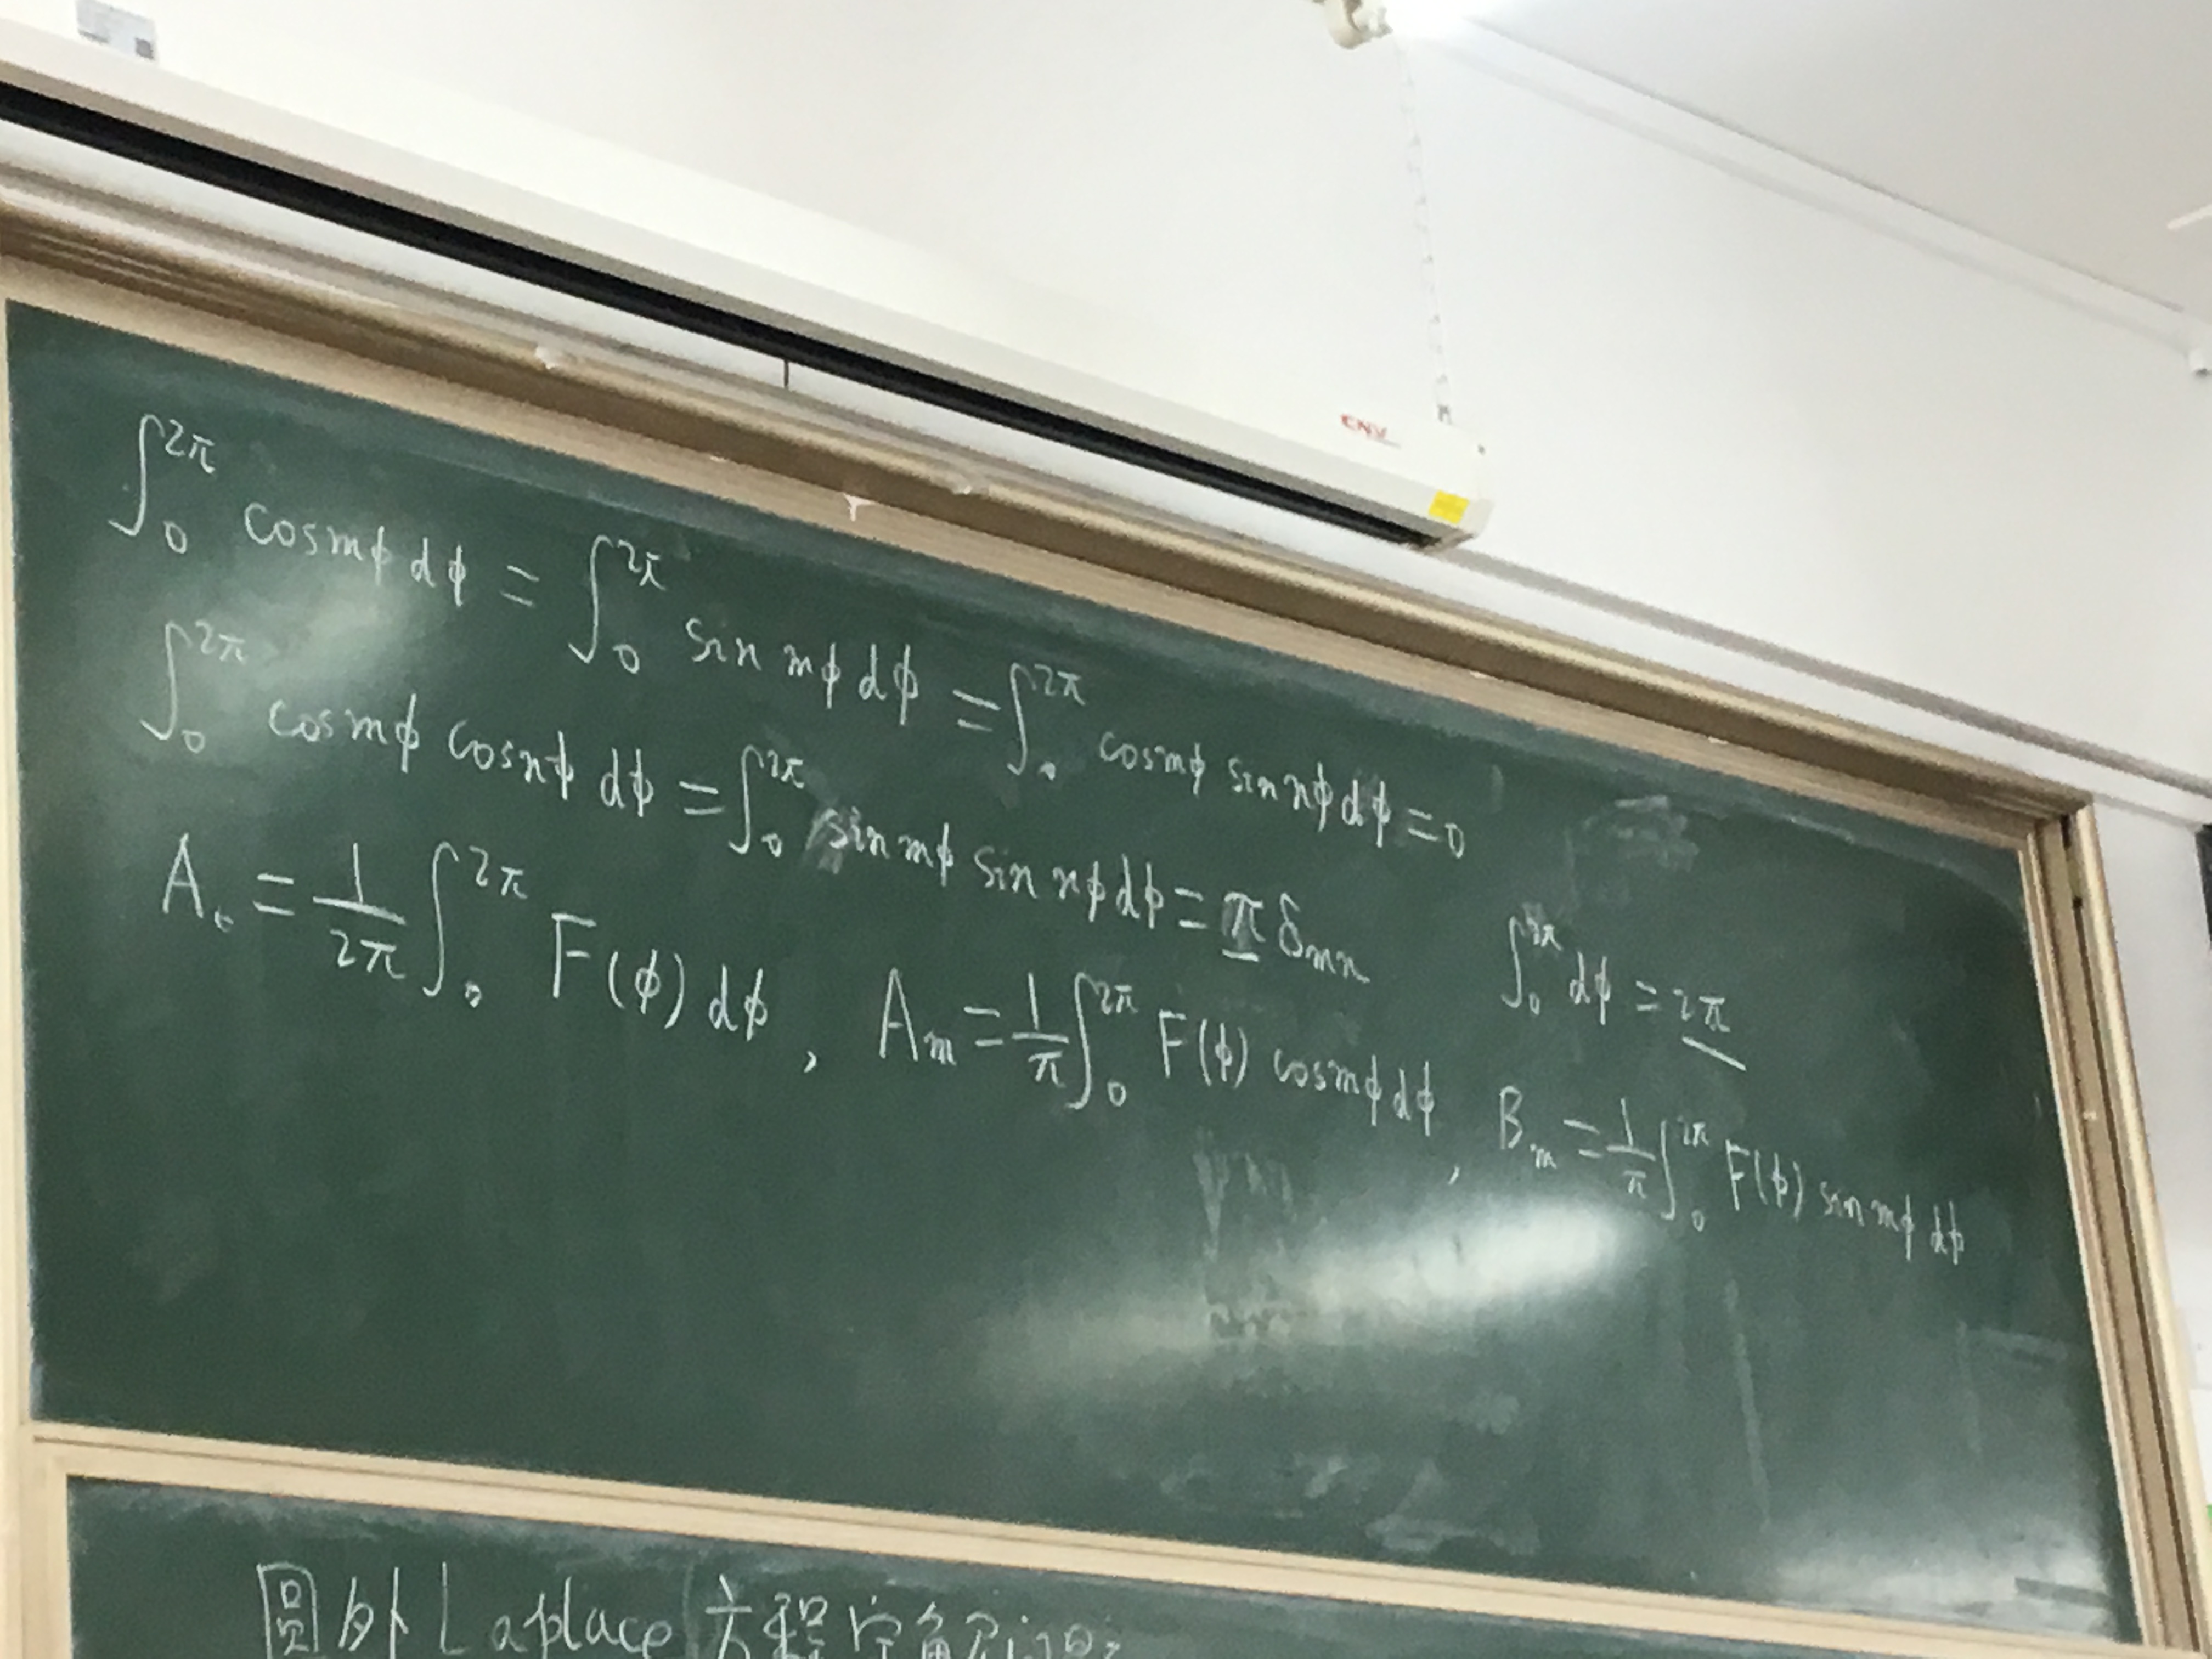 ENV
∫₀^{2π} cosmϕ dϕ = ∫₀^{2π} sin mϕ dϕ = ∫₀^{2π} cosmϕ sin nϕ dϕ = 0
∫₀^{2π} cosmϕ cosnϕ dϕ = ∫₀^{2π} sin mϕ sin nϕ dϕ = π δ_{mn}    ∫₀^{2π} dϕ = 2π
A₀ = 1/2π ∫₀^{2π} F(ϕ) dϕ , A_m = 1/π ∫₀^{2π} F(ϕ) cosmϕ dϕ , B_m = 1/π ∫₀^{2π} F(ϕ) sin mϕ dϕ
圆外Laplace方程定解问题